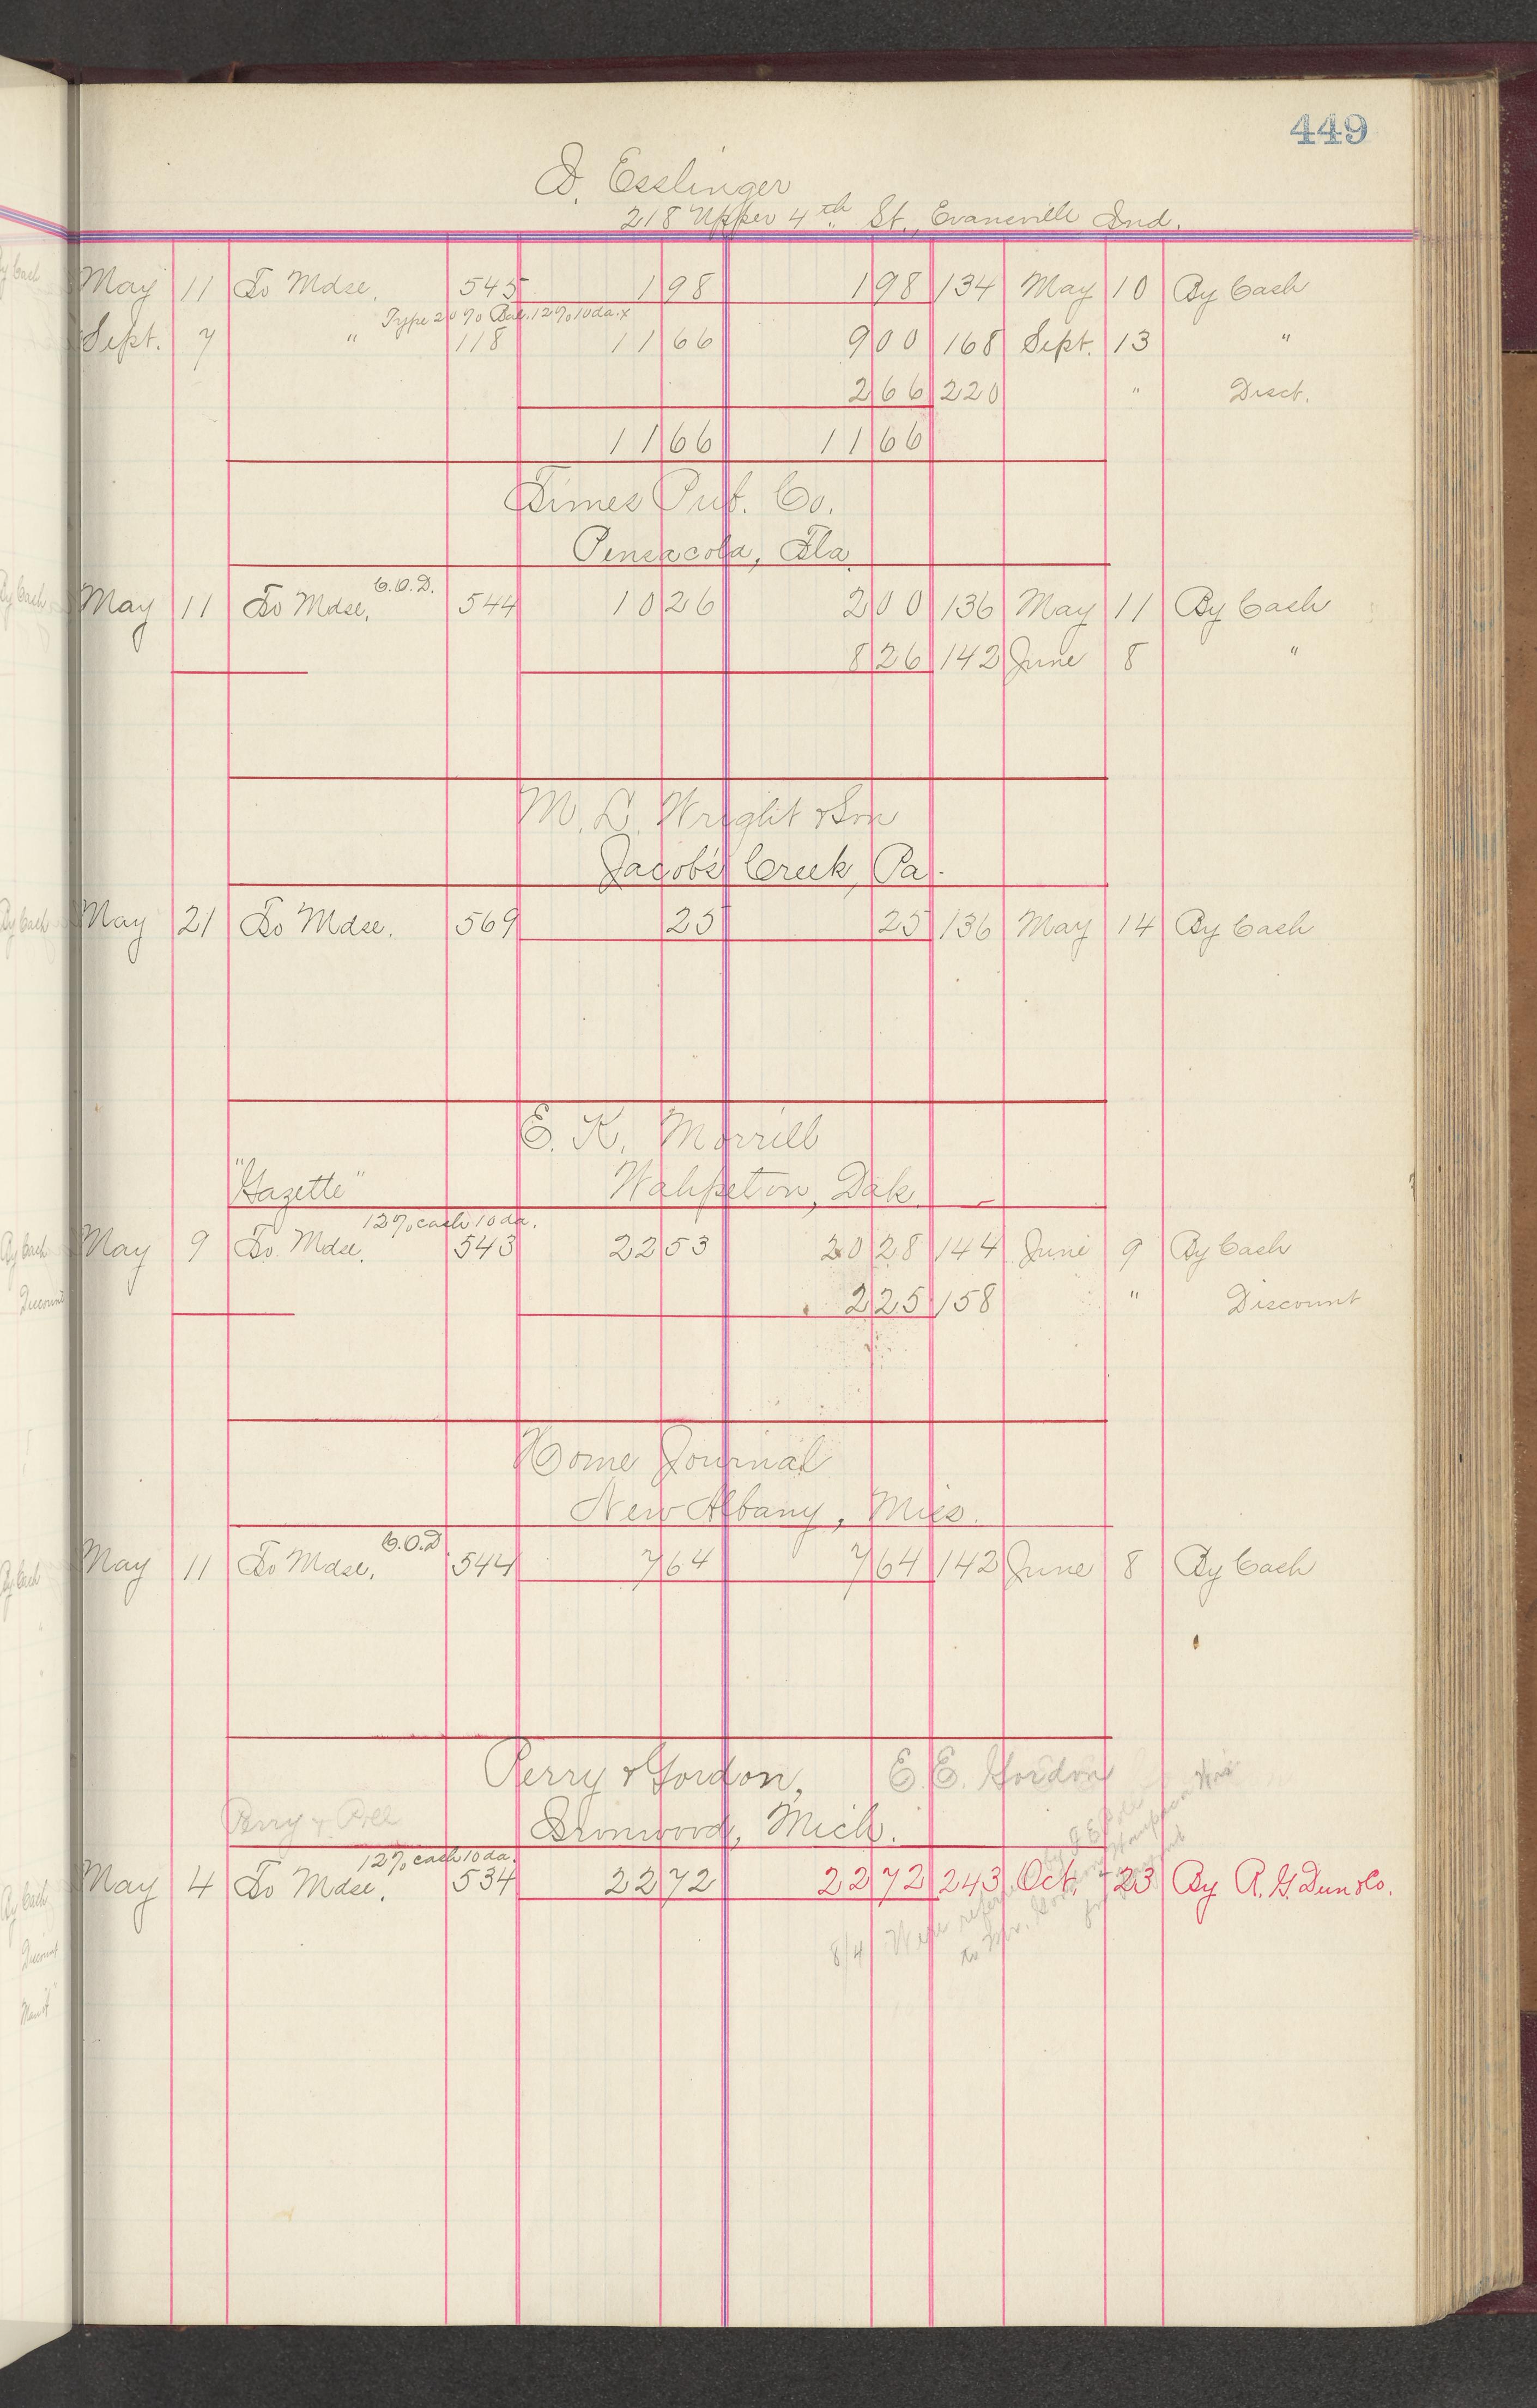 449
D. Esslinger
218 Upper 4th St., Evansville Ind.
May 11 To Mdse. 545 1 98 1 98 134 May 10 By Cash
Type 20% Bal. 12% 10 da. x
Sept. 7 " 118 11 66 9 00 168 Sept. 13 "
2 66 220 " Disct.
11 66 11 66
Times Pub. Co.
Pensacola, Fla.
C.O.D.
May 11 To Mdse. 544 10 26 2 00 136 May 11 By Cash
8 26 142 June 8 "
M. L. Wright & Son
Jacob's Creek, Pa.
May 21 To Mdse. 569 25 25 136 May 14 By Cash
E. K. Morrill
"Gazette" Wahpeton, Dak.
12% cash 10 da.
May 9 To Mdse. 543 22 53 20 28 144 June 9 By Cash
2 25 158 " Discount
Home Journal
New Albany, Miss.
C.O.D
May 11 To Mdse. 544 7 64 7 64 142 June 8 By Cash
Perry & Gordon, E. E. Gordon
Perry & Ironwood, Mich.
12% cash 10 da.
May 4 To Mdse. 534 22 72 22 72 243 Oct. 23 By R. G. Dun & Co.
8/4 Were
to Mr.
By Cash
By Cash
By Cash
By Cash
Discount
By Cash
By Cash
Discount